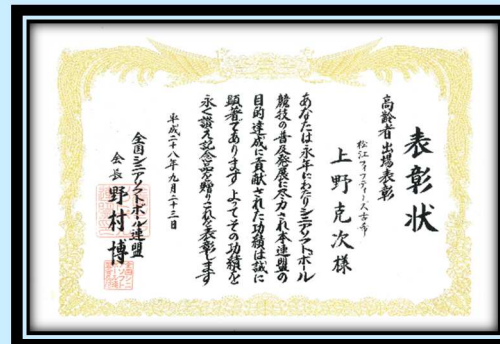 表彰状
高齢者出場表彰
松江アフティー大古希
上野克次様
あなたは永年にわたりシニアソフトボール
競技の普及発展に尽力され本連盟の
目的達成に貢献された功績は誠に
顕著であります よってその功績を
永く讃え記念品を贈りこれを表彰します
平成二十八年九月二十三日
全国シニアソフトボール連盟
会長 野村博